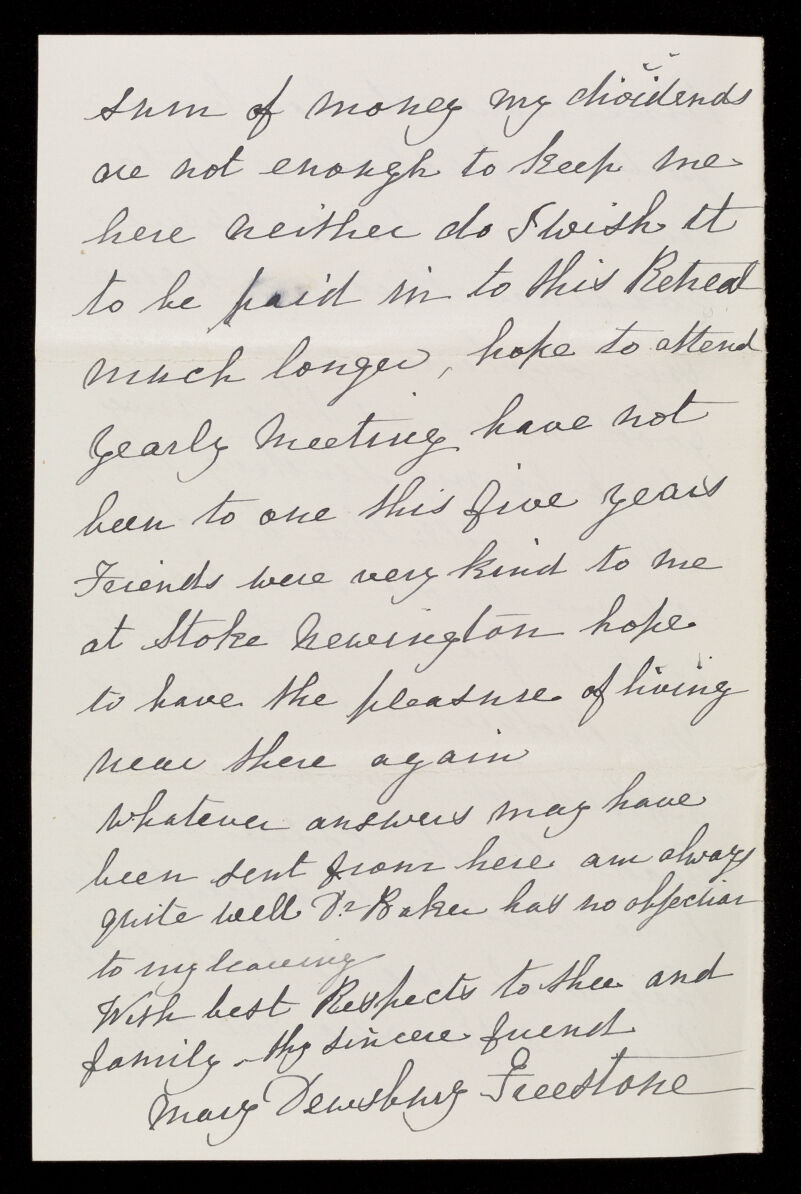 sum of money my dividends
are not enough to keep me
here neither do I wish it
to be paid in to this Retreat
much longer, hope to attend
yearly Meeting have not
been to one this five years
Friends were very kind to me
at Stoke Newington hope
to have the pleasure of living
near there again
Whatever answers may have
been sent from here am always
quite well Dr Baker has no objection
to my leaving
With best Respects to thee and
family - thy sincere friend
Mary Dewsbury Freestone